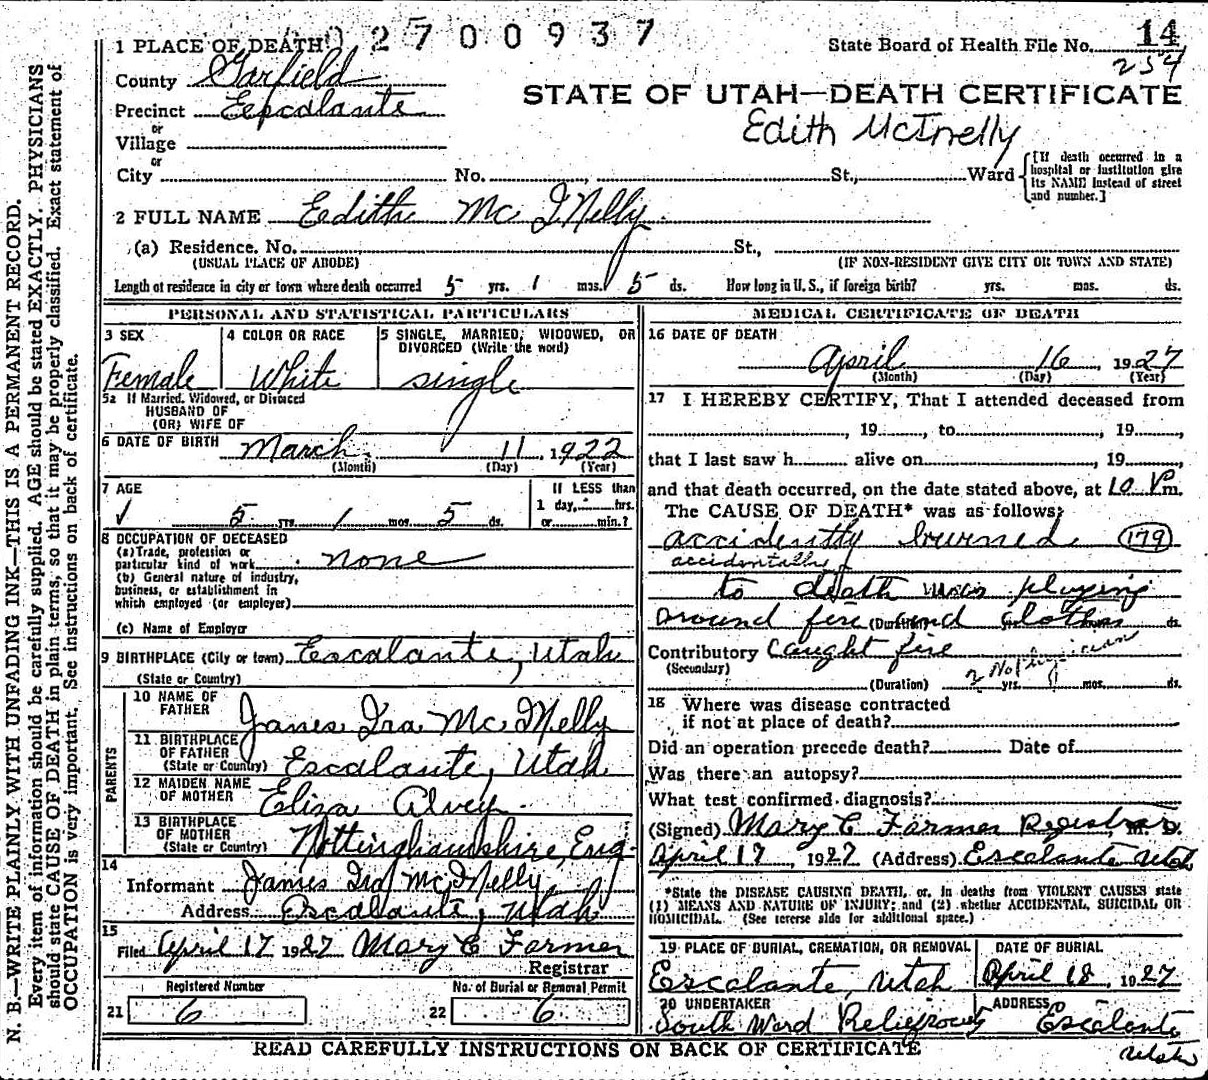 02700937
State Board of Health File No. 14
254
1 PLACE OF DEATH
County Garfield
Precinct Eescalante
or
Village
or
City No. St., Ward
STATE OF UTAH—DEATH CERTIFICATE
Edith McInelly
[If death occurred in a hospital or institution give its NAME instead of street and number.]
2 FULL NAME Eedith Mc INelly
(a) Residence. No. St.,
(USUAL PLACE OF ABODE) (IF NON-RESIDENT GIVE CITY OR TOWN AND STATE)
Length of residence in city or town where death occurred 5 yrs. 1 mos. 5 ds. How long in U. S., if foreign birth? yrs. mos. ds.
PERSONAL AND STATISTICAL PARTICULARS
3 SEX 4 COLOR OR RACE 5 SINGLE, MARRIED, WIDOWED, OR DIVORCED (Write the word)
Female White single
5a If Married, Widowed, or Divorced
HUSBAND OF
(OR) WIFE OF
6 DATE OF BIRTH March 11 1922
(Month) (Day) (Year)
7 AGE If LESS than
5 yrs. 1 mos. 5 ds. 1 day, hrs.
or min.?
8 OCCUPATION OF DECEASED
(a) Trade, profession or
particular kind of work none
(b) General nature of industry,
business, or establishment in
which employed (or employer)
(c) Name of Employer
9 BIRTHPLACE (City or town) Escalante, Utah
(State or Country)
PARENTS
10 NAME OF
FATHER James Ira Mc INelly
11 BIRTHPLACE
OF FATHER
(State or Country) Escalante, Utah
12 MAIDEN NAME
OF MOTHER Eliza Alvey
13 BIRTHPLACE
OF MOTHER
(State or Country) Nottinghamshire, Eng.
14
Informant James Ira McINelly
Address Escalante, Utah
15
Filed April 17 1927 Mary C Farmer
Registrar
Registered Number No. of Burial or Removal Permit
21 6 22 6
MEDICAL CERTIFICATE OF DEATH
16 DATE OF DEATH
April 16 1927
(Month) (Day) (Year)
17 I HEREBY CERTIFY, That I attended deceased from
, 19 , to , 19 ,
that I last saw h alive on , 19 ,
and that death occurred, on the date stated above, at 10 Pm.
The CAUSE OF DEATH* was as follows:
accidently burned 179
accidentally
to death was playing
around fire and clothes
(Duration) ds.
Contributory caught fire
(Secondary) 2 No physician
(Duration) yrs. mos. ds.
18 Where was disease contracted
if not at place of death?
Did an operation precede death? Date of
Was there an autopsy?
What test confirmed diagnosis?
(Signed) Mary C Farmer Registrar M. D.
April 17, 1927 (Address) Escalante Utah
*State the DISEASE CAUSING DEATH, or, in deaths from VIOLENT CAUSES state
(1) MEANS AND NATURE OF INJURY; and (2) whether ACCIDENTAL, SUICIDAL OR
HOMICIDAL. (See reverse side for additional space.)
19 PLACE OF BURIAL, CREMATION, OR REMOVAL DATE OF BURIAL
Escalante, Utah April 18, 1927
20 UNDERTAKER ADDRESS
South Ward Escalante
Utah
READ CAREFULLY INSTRUCTIONS ON BACK OF CERTIFICATE
N. B.—WRITE PLAINLY WITH UNFADING INK—THIS IS A PERMANENT RECORD.
Every item of information should be carefully supplied. AGE should be stated EXACTLY. PHYSICIANS
should state CAUSE OF DEATH in plain terms, so that it may be properly classified. Exact statement of
OCCUPATION is very important. See instructions on back of certificate.